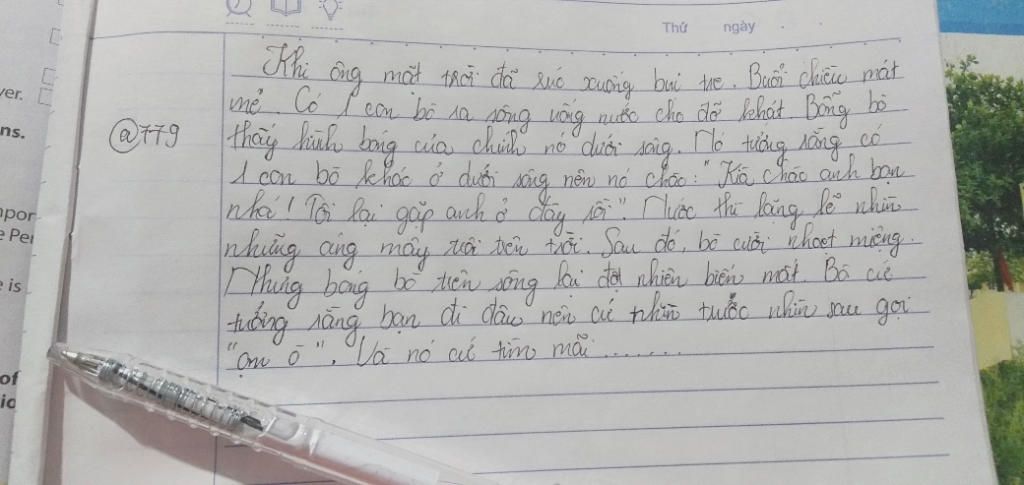 Thứ ngày
Khi ông mặt trời đã rúc xuống bụi tre. Buổi chiều mát
mẻ. Có 1 con bò ra sông uống nước cho đỡ khát. Bỗng bò
@779
thấy hình bóng của chính nó dưới sông. Nó tưởng rằng có
1 con bò khác ở dưới sông nên nó chào: "Kìa chào anh bạn
nhá! Tôi lại gặp anh ở đây rồi". Nước thì lẳng lẽ nhìn
những áng mây trôi trên trời. Sau đó, bò cười nhoẹt miệng.
Nhưng bóng bò trên sông lại đột nhiên biến mất. Bò cứ
tưởng rằng bạn đi đâu nên cứ nhìn trước nhìn sau gọi
"ậm ò". Và nó cứ tìm mãi.......
yer.
ns.
e Per
e is
of